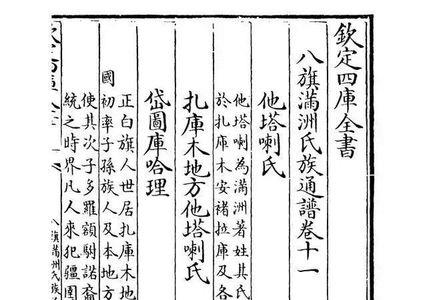 欽定四庫全書
八旗滿洲氏族通譜卷十一
他塔喇氏
他塔喇為滿洲著姓其氏
於扎庫木安褚拉庫及各
扎庫木地方他塔喇氏
岱圖庫哈理
正白旗人世居扎庫木地
國初率子孫族人及本地方
使其次子多羅額駙諾裔
統之時界凡人來犯疆圉
八旗滿洲氏族